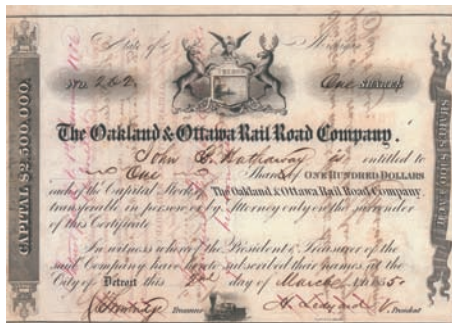 State of Michigan
No. 262. One SHARES
TUEBOR
The Oakland & Ottawa Rail Road Company.
John C. Hathaway is entitled to
One Shares of ONE HUNDRED DOLLARS
each of the Capital Stock of The Oakland & Ottawa Rail Road Company,
transferable in person or by Attorney only on the surrender
of this Certificate
In witness whereof the President & Treasurer of the
said Company have hereto subscribed their names at the
City of Detroit this 2nd day of March 185
Treasurer H. Ledyard V. President
CAPITAL $2,500,000.
SHARES $100 EACH